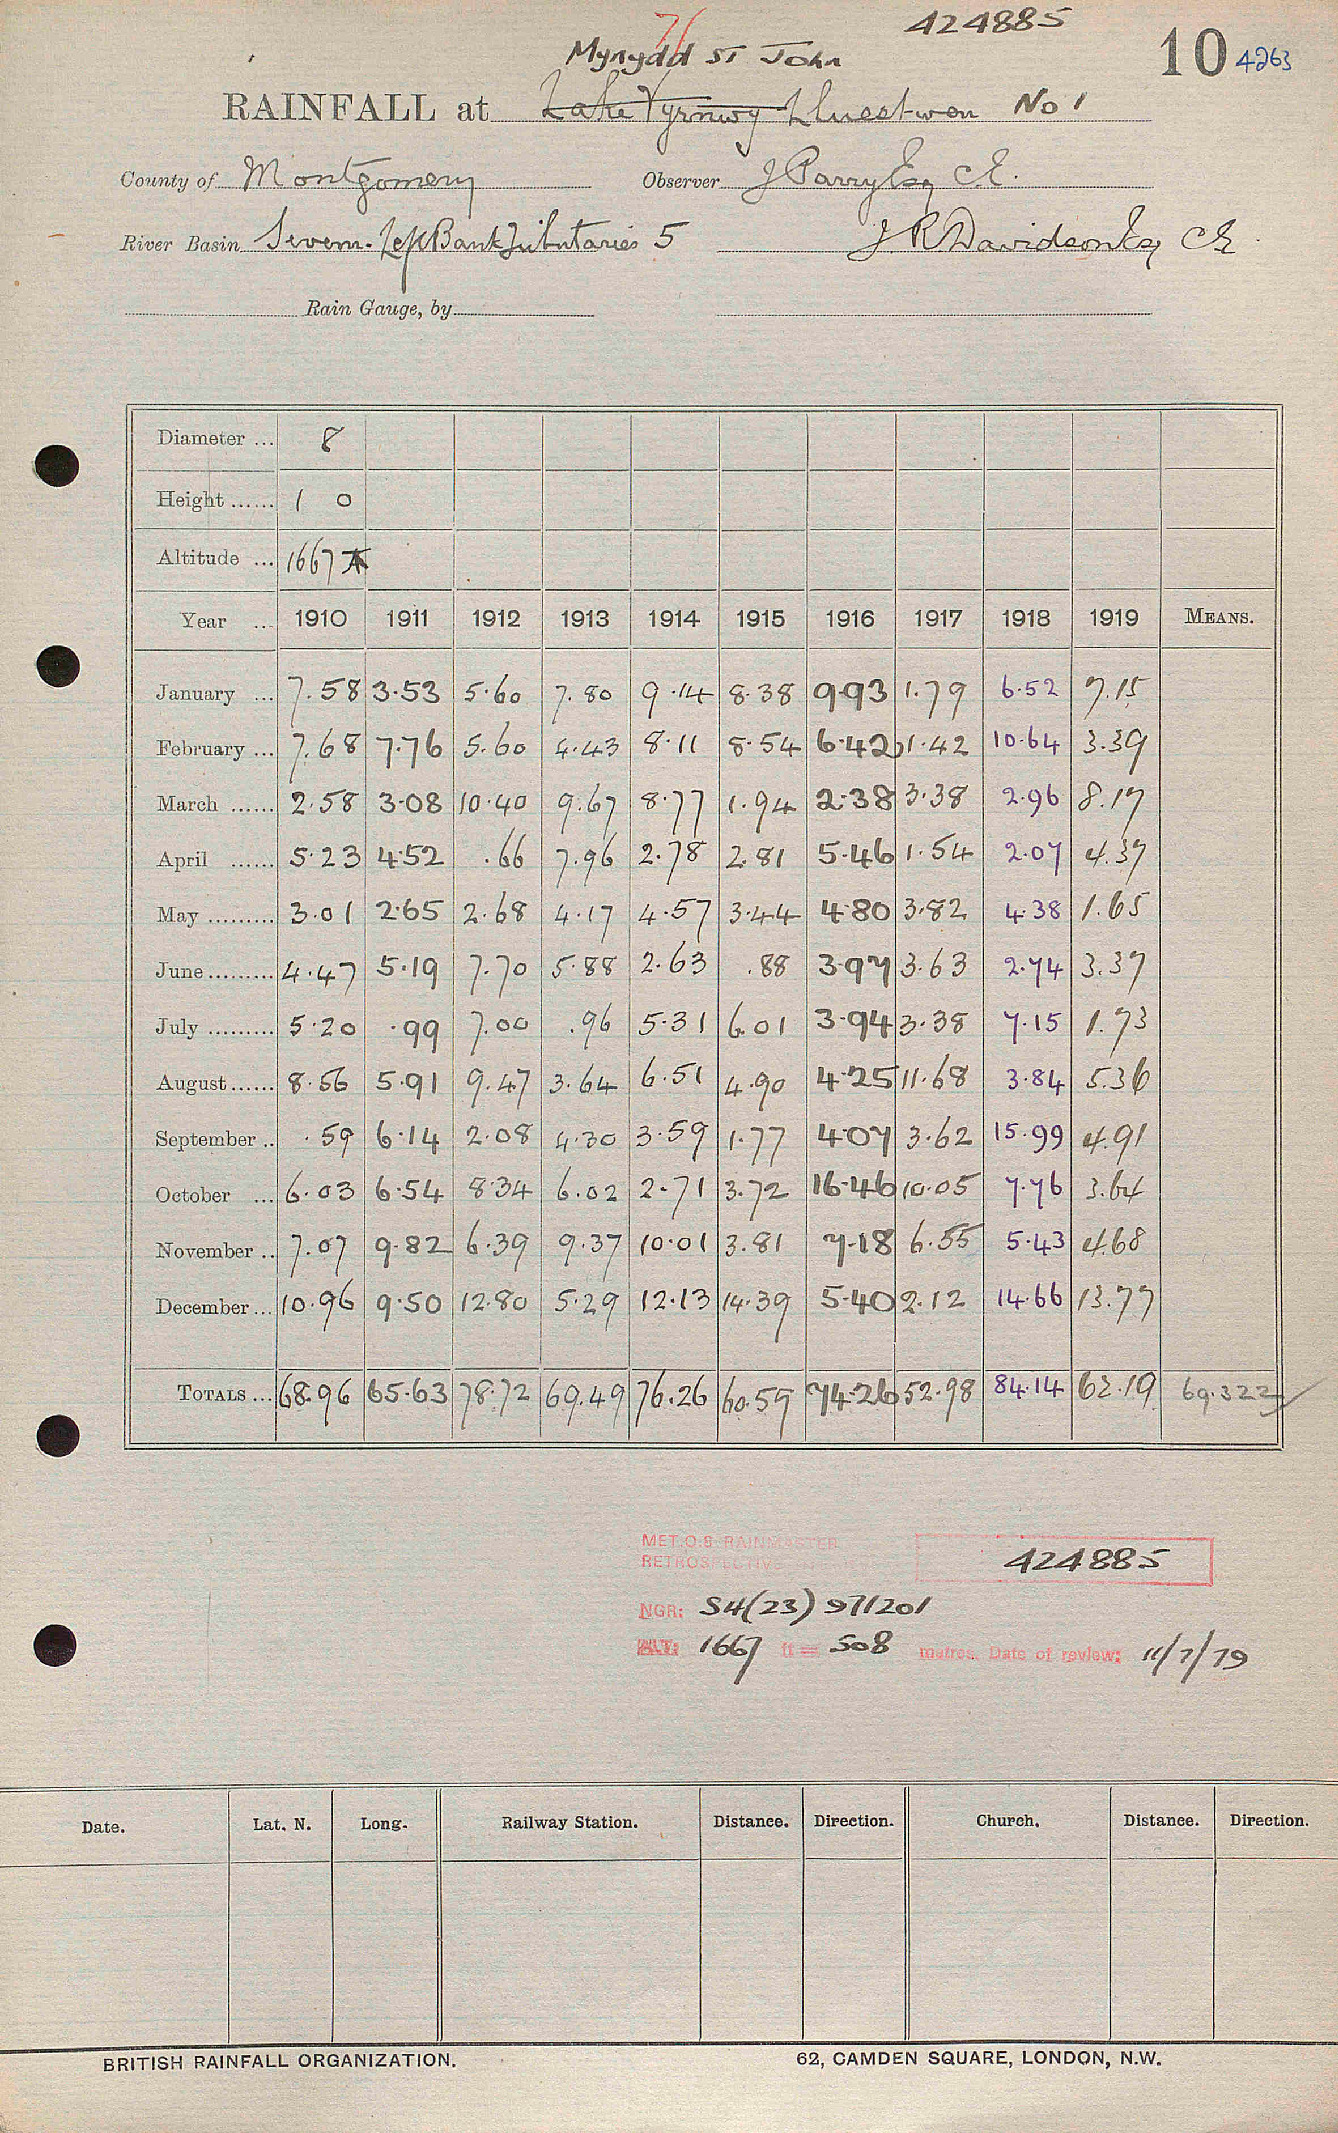 71
424885
Mynydd ST John
10 4263
RAINFALL at Lake Vyrnwy Lluest-wen No 1
County of Montgomery Observer J Parry Esq C.E.
River Basin Severn. Left Bank Tributaries 5 J R Davidson Esq CE
Rain Gauge, by
Diameter ... 8
Height ...... 1 0
Altitude ... 1667
Year ... 1910 1911 1912 1913 1914 1915 1916 1917 1918 1919 MEANS.
January ... 7.58 3.53 5.60 7.80 9.14 8.38 9.93 1.79 6.52 7.15
February ... 7.68 7.76 5.60 4.43 8.11 8.54 6.42 1.42 10.64 3.39
March ...... 2.58 3.08 10.40 9.67 8.77 1.94 2.38 3.38 2.96 8.17
April ...... 5.23 4.52 .66 7.96 2.78 2.81 5.46 1.54 2.07 4.37
May ......... 3.01 2.65 2.68 4.17 4.57 3.44 4.80 3.82 4.38 1.65
June ......... 4.47 5.19 7.70 5.88 2.63 .88 3.97 3.63 2.74 3.37
July ......... 5.20 .99 7.00 .96 5.31 6.01 3.94 3.38 7.15 1.73
August ...... 8.56 5.91 9.47 3.64 6.51 4.90 4.25 11.68 3.84 5.36
September .. .59 6.14 2.08 4.30 3.59 1.77 4.07 3.62 15.99 4.91
October ... 6.03 6.54 8.34 6.02 2.71 3.72 16.46 10.05 7.76 3.64
November .. 7.07 9.82 6.39 9.37 10.01 3.81 7.18 6.55 5.43 4.68
December ... 10.96 9.50 12.80 5.29 12.13 14.39 5.40 2.12 14.66 13.77
TOTALS ... 68.96 65.63 78.72 69.49 76.26 60.59 74.26 52.98 84.14 62.19 69.322
MET.O.8 RAINMASTER
RETROSPECTIVE 424885
NGR: S4(23) 971201
ALT: 1667 ft = 508 metres. Date of review: 11/7/79
Date. Lat. N. Long. Railway Station. Distance. Direction. Church. Distance. Direction.
BRITISH RAINFALL ORGANIZATION. 62, CAMDEN SQUARE, LONDON, N.W.